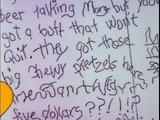 beer talking Marge but you
got a butt that won't
Quit. they got those
big chewy pretzels he
five dollars??!!!?